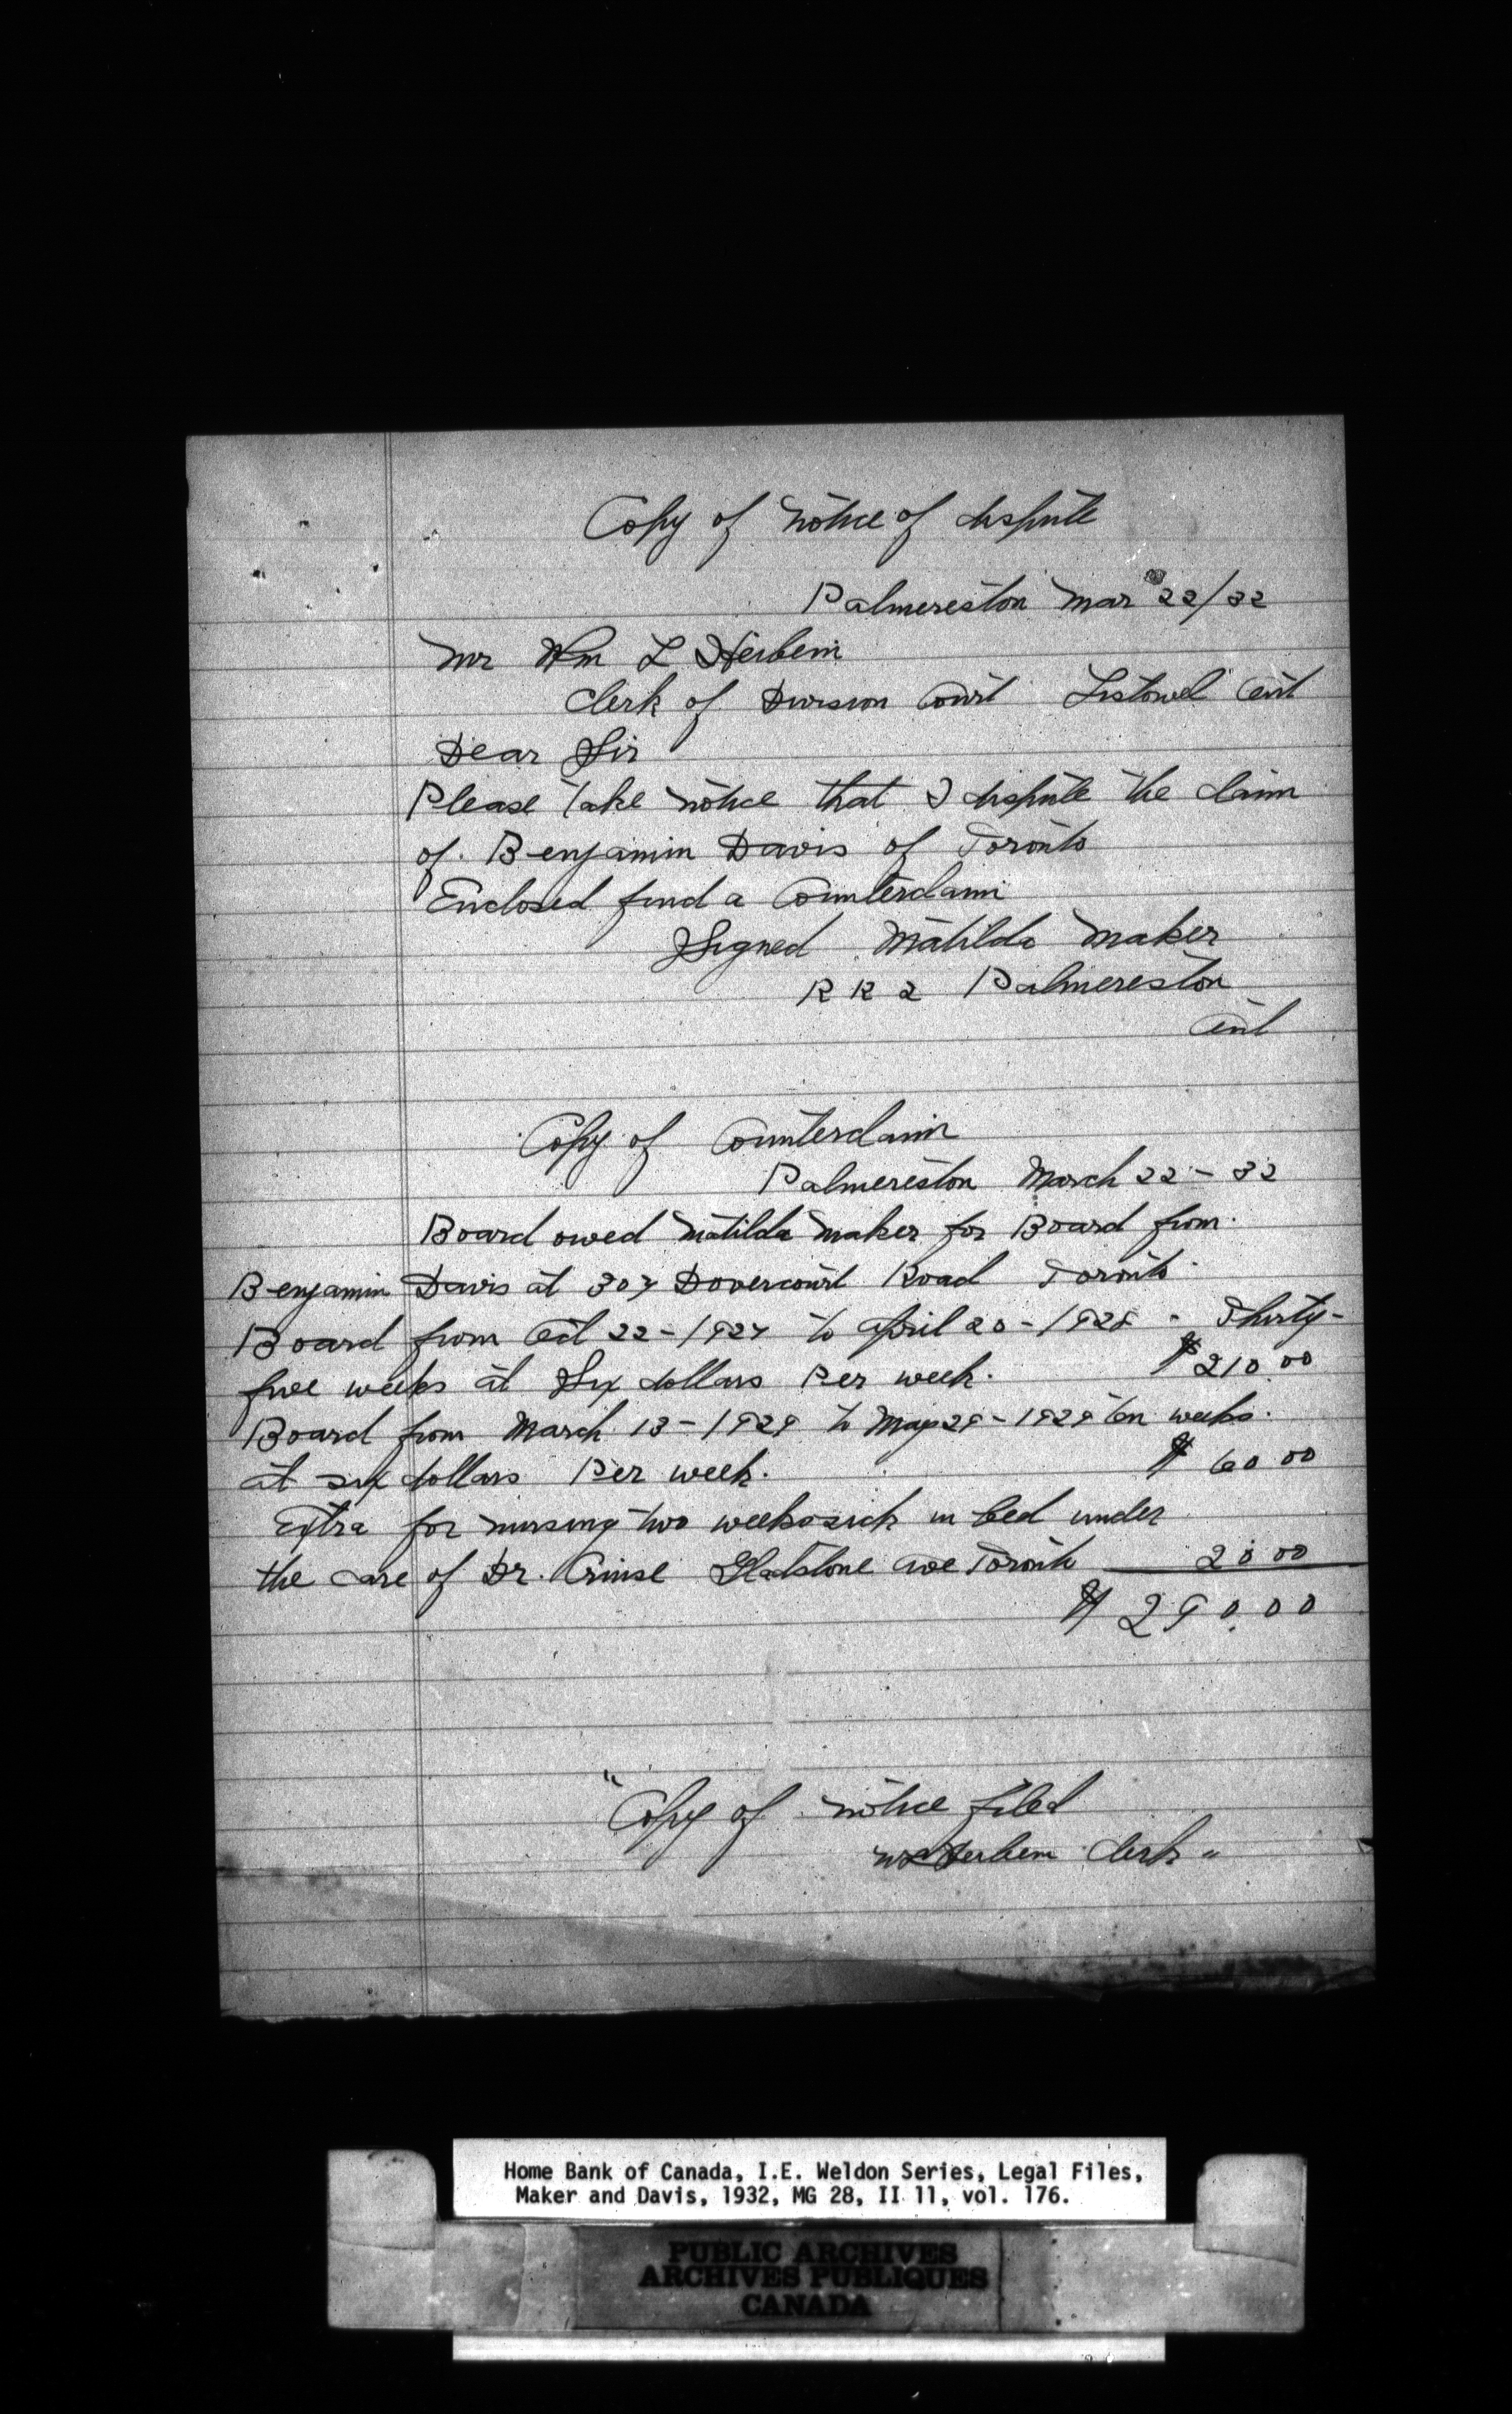 Copy of notice of dispute
Palmereston Mar 22/32
Mr Wm L Herbein
Clerk of Division Court Listowel Ont
Dear Sir
Please take notice that I dispute the claim
of Benjamin Davis of Toronto
Enclosed find a Counterclaim
Signed Matilda Maker
R R 2 Palmereston
Ont
Copy of Counterclaim
Palmereston March 22 - 32
Board owed Matilda Maker for Board from
Benjamin Davis at 307 Dovercourt Road Toronto
Board from Oct 22 - 1927 to April 20 - 1928 - Thirty-
five weeks at Six dollars Per week. $210.00
Board from March 13 - 1929 to May 29 - 1929 ten weeks.
at six dollars Per week. $ 60 00
Extra for nursing two weeks sick in bed under
the care of Dr. Gladstone ave Toronto 20 00
$ 290.00
"Copy of notice filed
W L Herbein Clerk"
Home Bank of Canada, I.E. Weldon Series, Legal Files,
Maker and Davis, 1932, MG 28, II 11, vol. 176.
PUBLIC ARCHIVES
ARCHIVES PUBLIQUES
CANADA